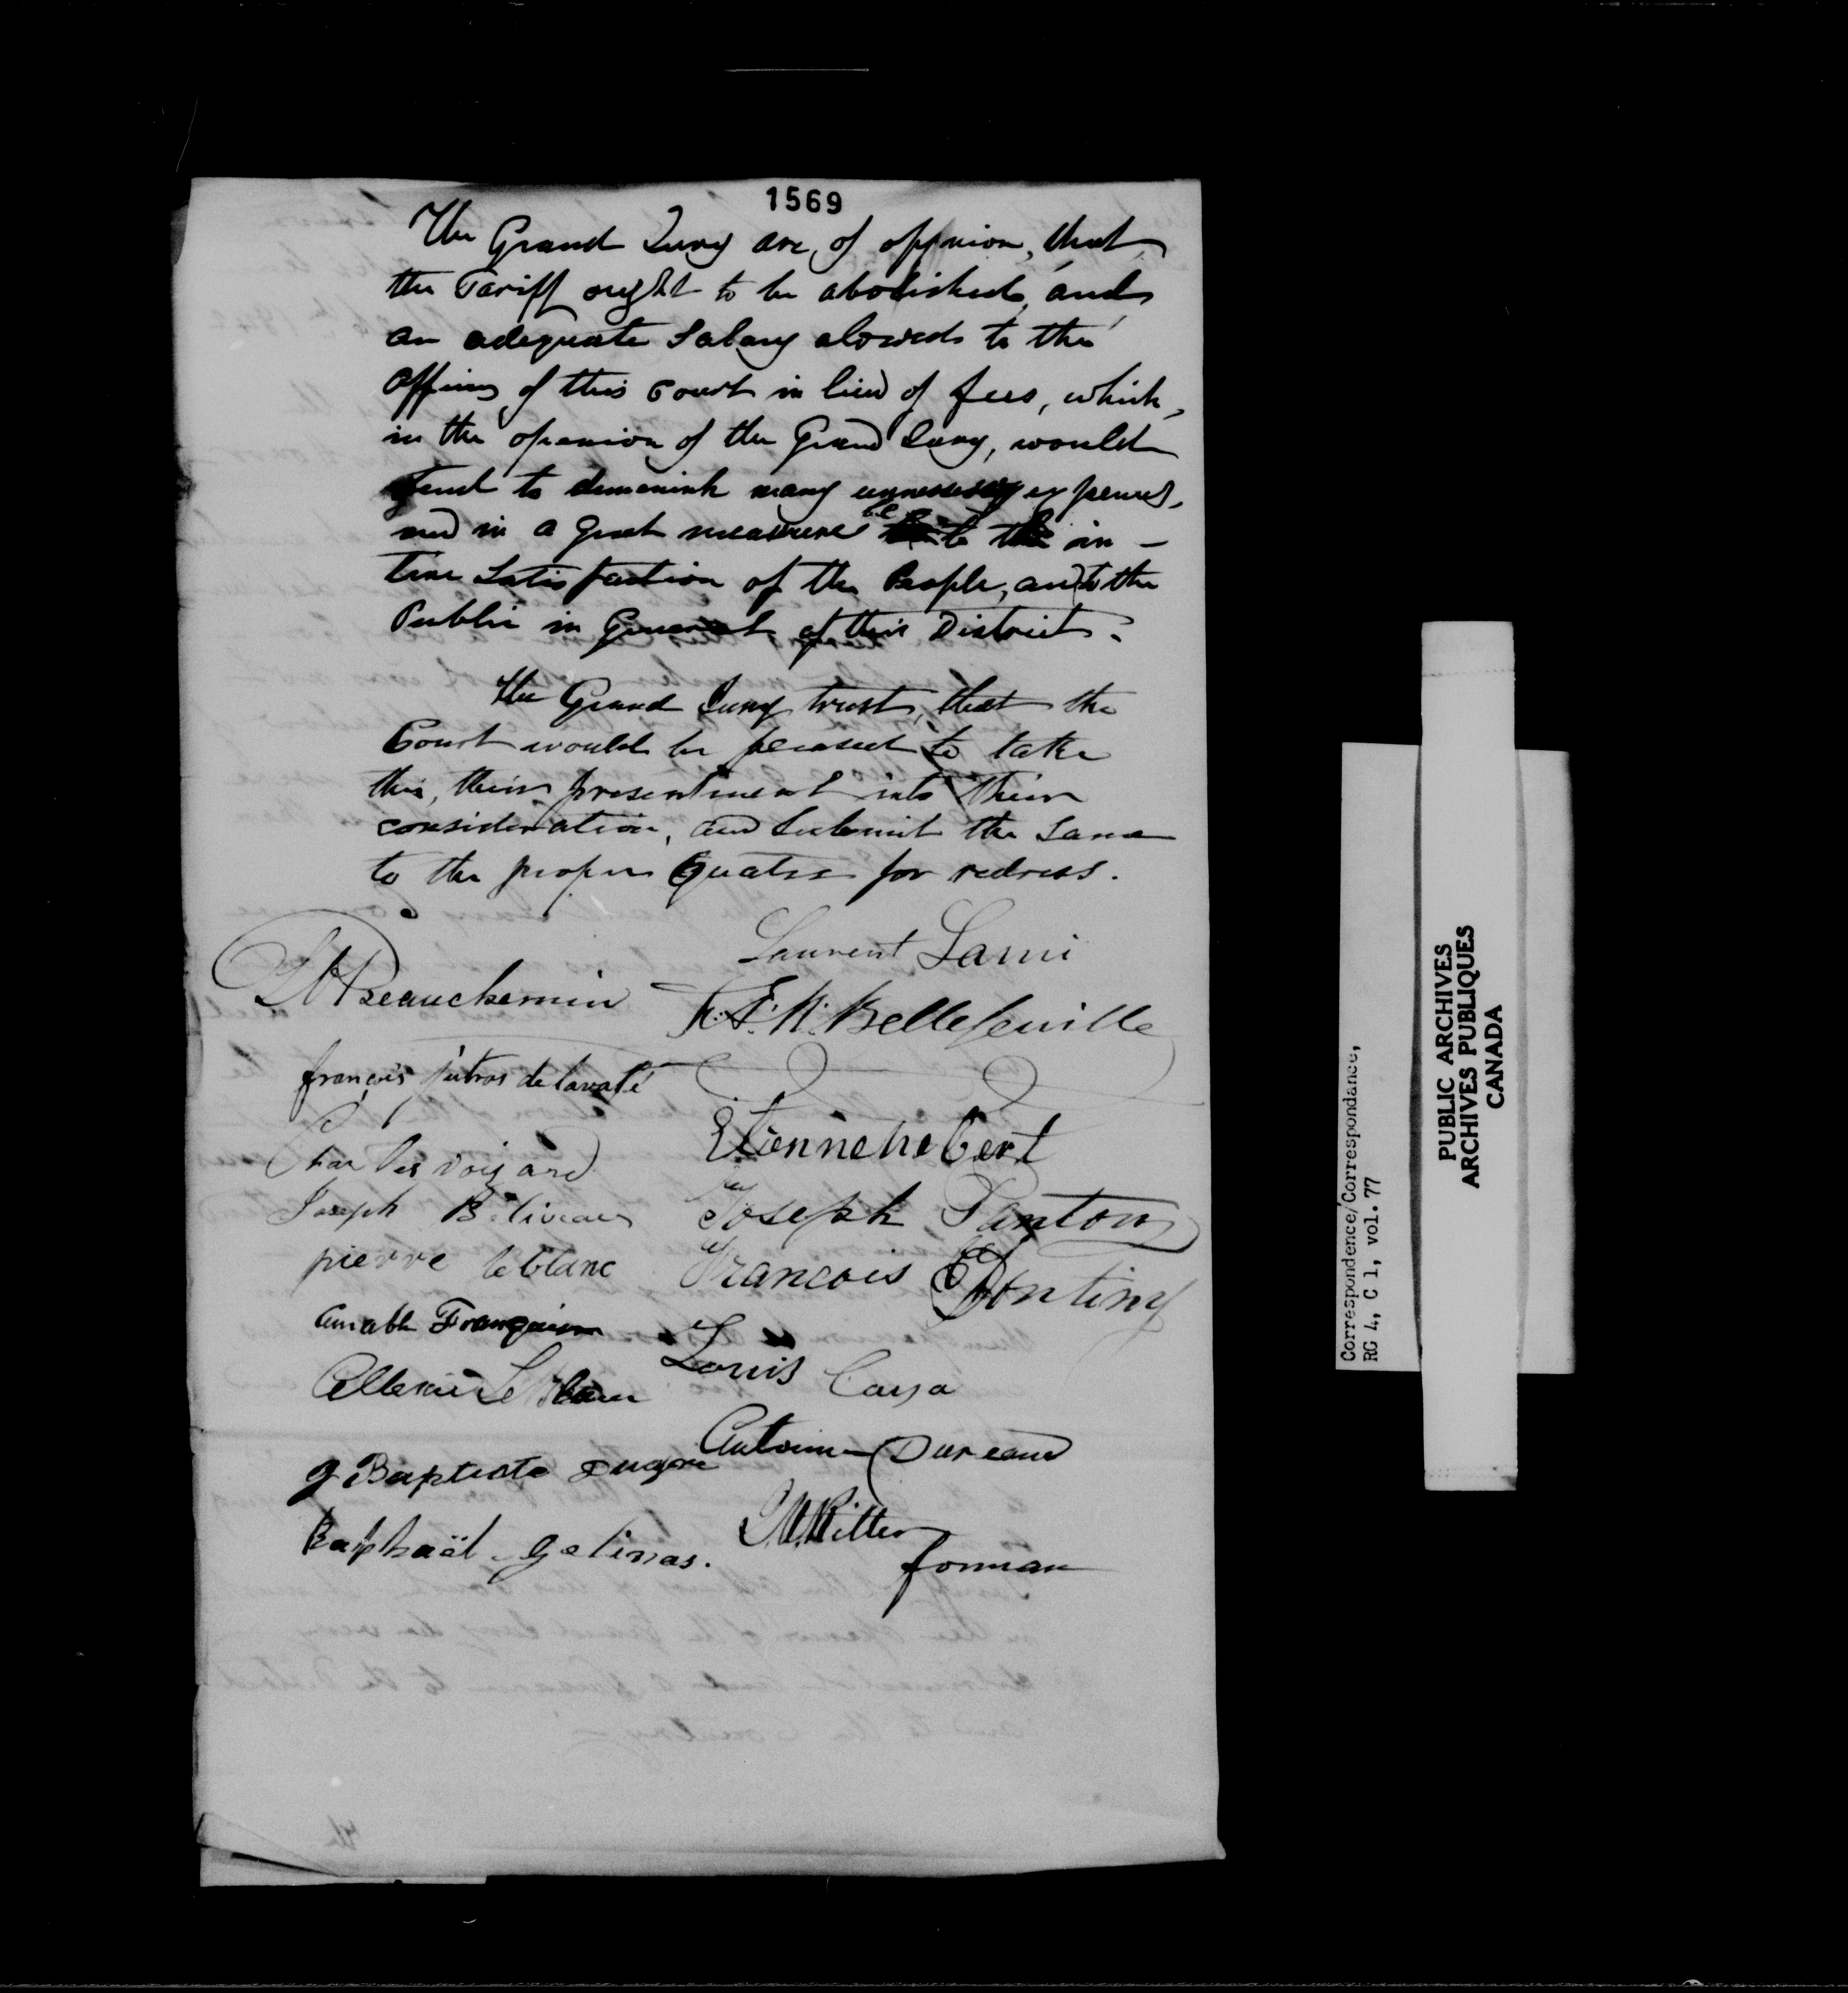 1569
The Grand Jury are, of oppinion, that
the Tariff ought to be abolished, and
an adequate Salary alowed to the
Officers of this Court in lieu of fees, which,
in the openion of the Grand Jury, would
tend to demenish many unnessessary expences,
and in a great measure be to the in -
tire Satisfaction of the People, and to the
Public in General of this District.
The Grand Jury trust, that the
Court would be pleased to take
this, their presentment into their
consideration, and Submit the Same
to the proper Quater for redress.
Laurent Lami
Beauchemin
Bellefeuille
françois jutras de lavalé
Etienne hebert
Charles voisard
Joseph Beliveau
Joseph Panton
pierre leblanc
Francois Dontiny
amable Franquin
Louis Caya
Allexis Le Blanc
Antoine Dureau
J Baptiste dugre
Raphaël gelinas.
Ritter
forman
Correspondence/Correspondance,
RG 4, C 1, vol. 77
PUBLIC ARCHIVES
ARCHIVES PUBLIQUES
CANADA